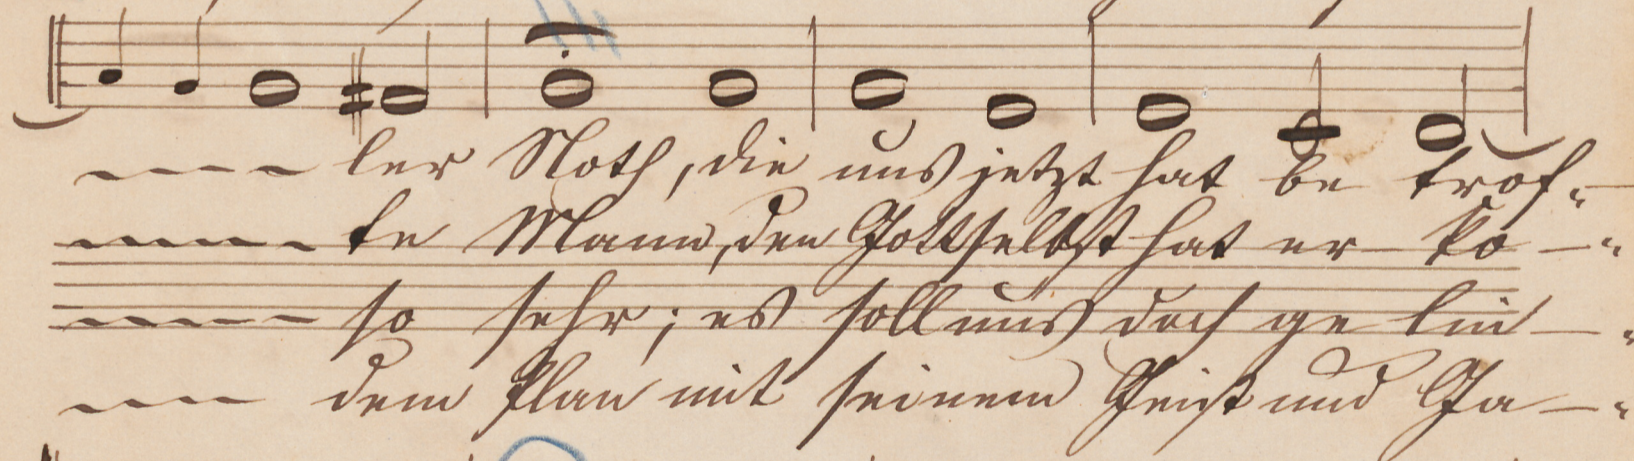 ler Noth, die uns jetzt hat be trof-
te Mann, den Gott selbst hat er ko-
so sehr; es soll uns doch ge lin-
dem Plan mit seinem Geist und Ga-